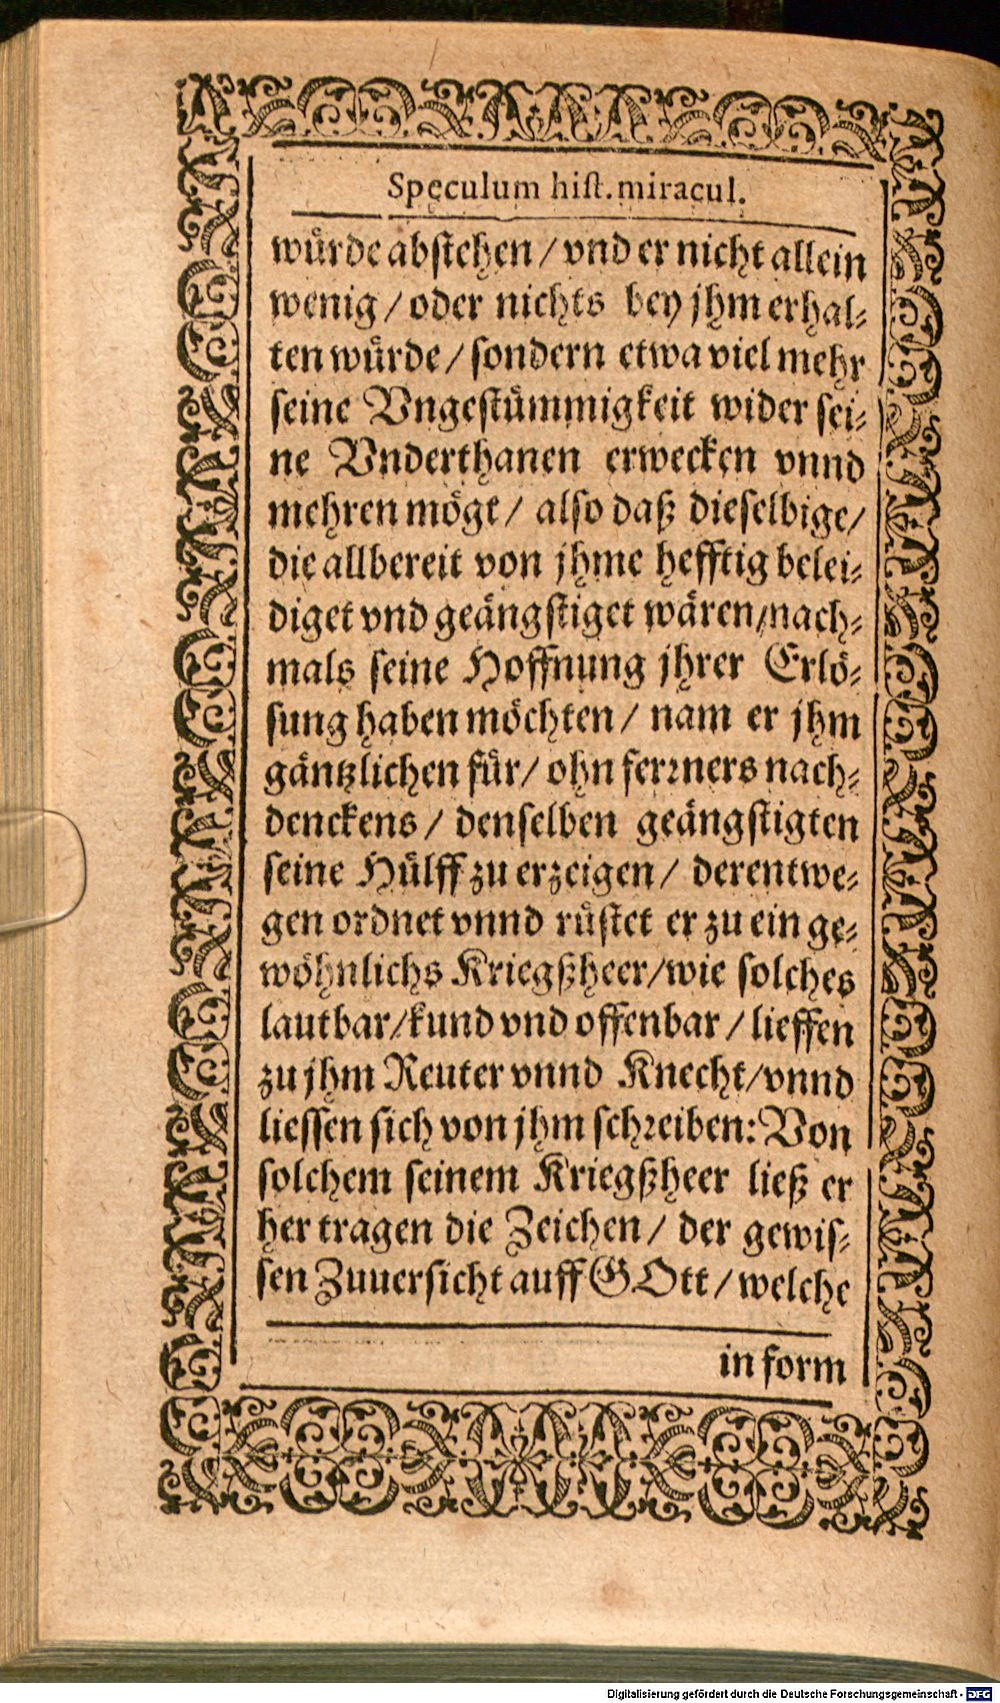 Speculum hist. miracul.
würde abstehen / vnd er nicht allein
wenig / oder nichts bey jhm erhal-
ten würde / sondern etwa viel mehr
seine Vngestümmigkeit wider sei-
ne Vnderthanen erwecken vnnd
mehren mögt / also daß dieselbige /
die allbereit von jhme hefftig belei-
diget vnd geängstiget wären / nach-
mals seine Hoffnung jhrer Erlö-
sung haben möchten / nam er jhm
gäntzlichen für / ohn ferrners nach-
denckens / denselben geängstigten
seine Hülff zu erzeigen / derentwe-
gen ordnet vnnd rüstet er zu ein ge-
wöhnlichs Kriegßheer / wie solches
lautbar / kund vnd offenbar / lieffen
zu jhm Reuter vnnd Knecht / vnnd
liessen sich von jhm schreiben: Von
solchem seinem Kriegßheer ließ er
her tragen die Zeichen / der gewis-
sen Zuuersicht auff GOtt / welche
in form
Digitalisierung gefördert durch die Deutsche Forschungsgemeinschaft - DFG